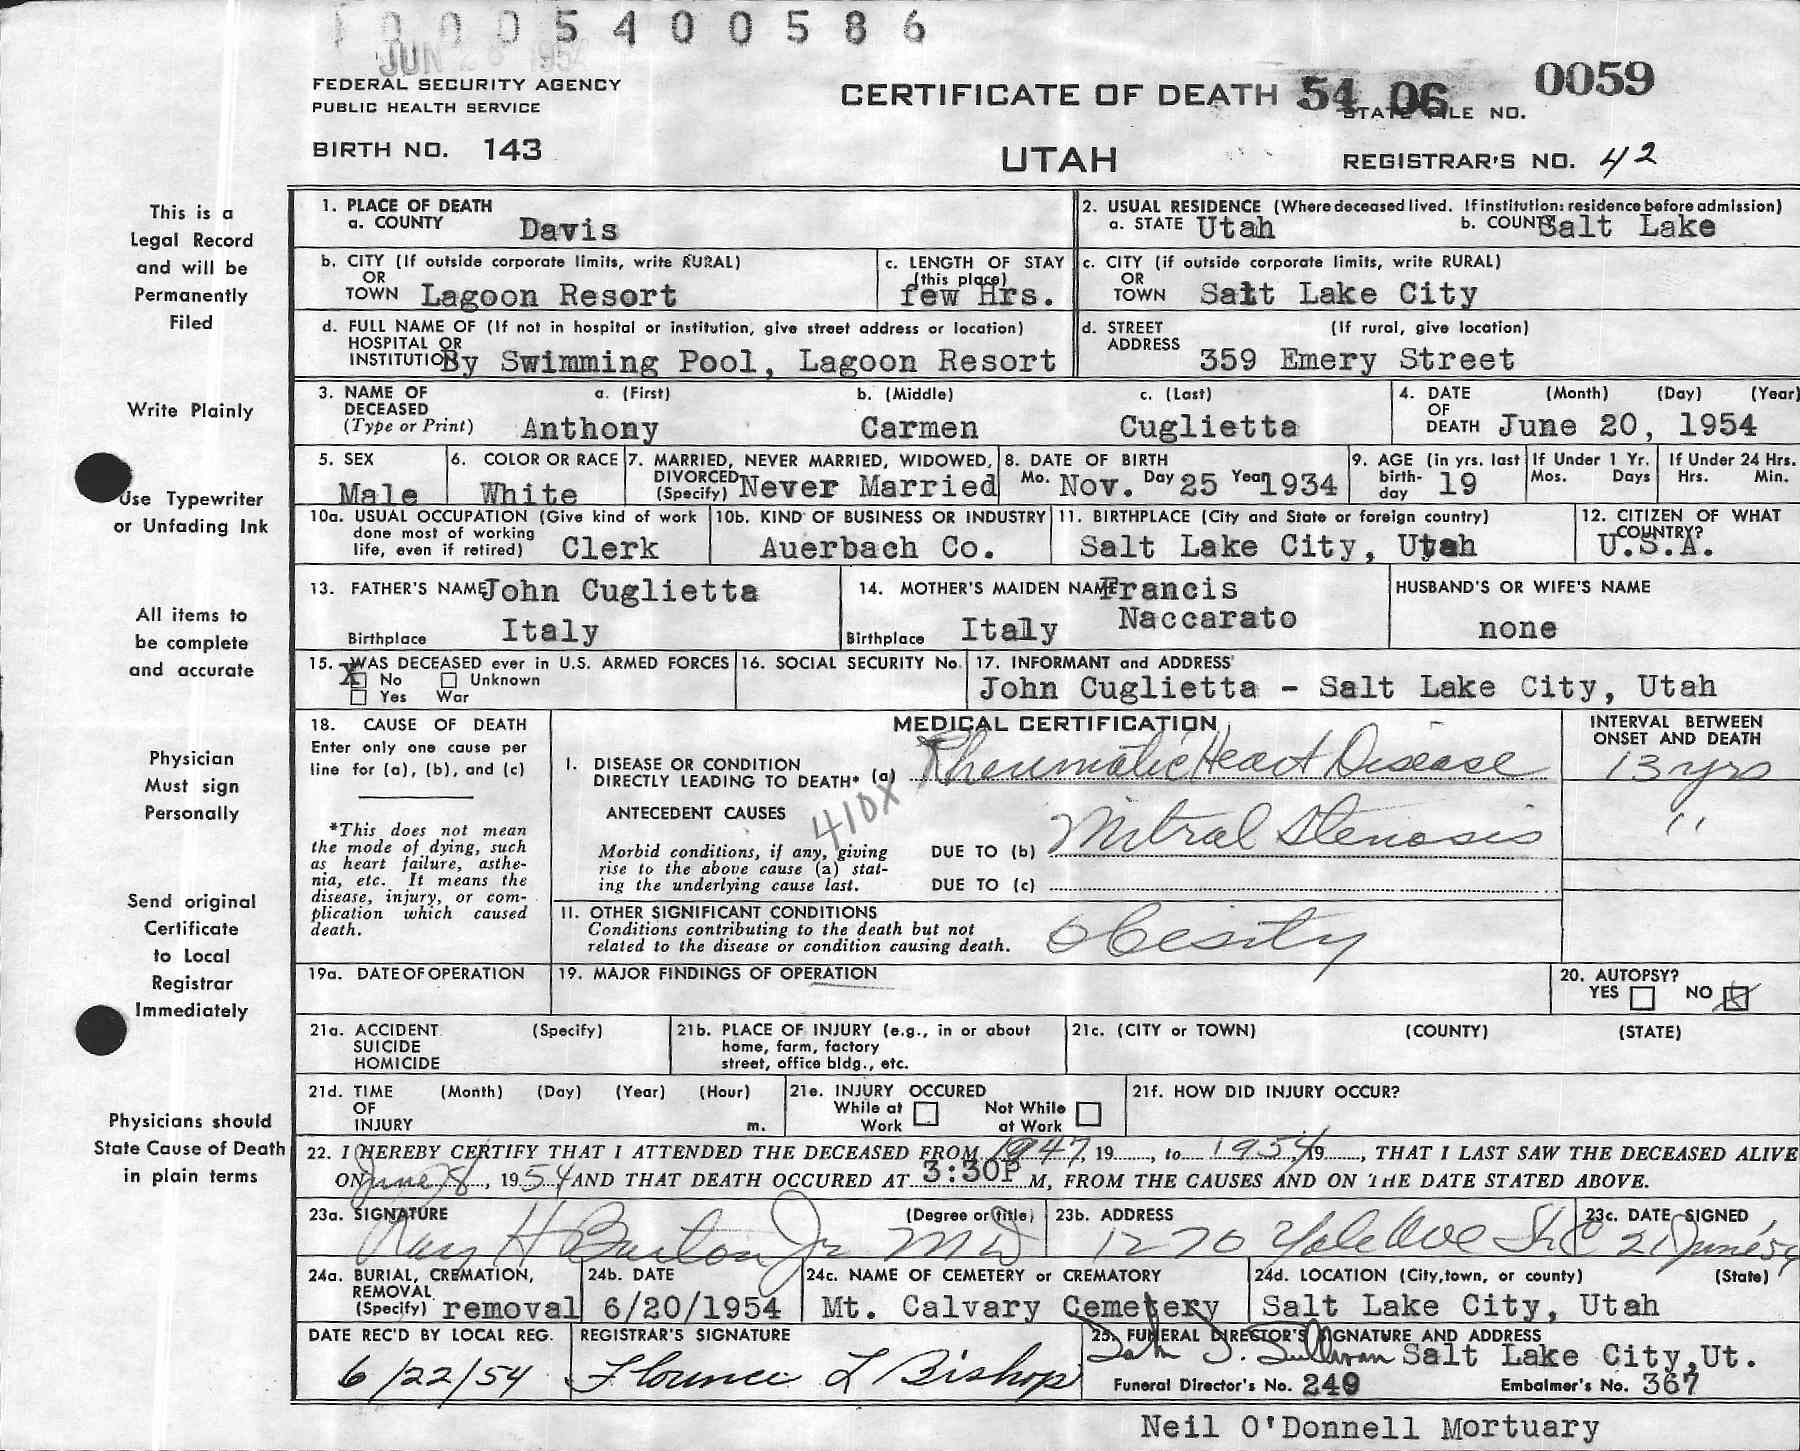 1 0 0 0 5 4 0 0 5 8 6
JUN 1954
FEDERAL SECURITY AGENCY
PUBLIC HEALTH SERVICE
BIRTH NO. 143
CERTIFICATE OF DEATH 54 06 0059
STATE FILE NO.
UTAH
REGISTRAR'S NO. 42
This is a
Legal Record
and will be
Permanently
Filed
Write Plainly
Use Typewriter
or Unfading Ink
All items to
be complete
and accurate
Physician
Must sign
Personally
Send original
Certificate
to Local
Registrar
Immediately
Physicians should
State Cause of Death
in plain terms
1. PLACE OF DEATH
a. COUNTY Davis
2. USUAL RESIDENCE (Where deceased lived. If institution: residence before admission)
a. STATE Utah b. COUNTY Salt Lake
b. CITY (If outside corporate limits, write RURAL)
OR
TOWN Lagoon Resort
c. LENGTH OF STAY
(this place)
few Hrs.
c. CITY (if outside corporate limits, write RURAL)
OR
TOWN Salt Lake City
d. FULL NAME OF (If not in hospital or institution, give street address or location)
HOSPITAL OR
INSTITUTION By Swimming Pool, Lagoon Resort
d. STREET (If rural, give location)
ADDRESS
359 Emery Street
3. NAME OF a. (First) b. (Middle) c. (Last)
DECEASED
(Type or Print) Anthony Carmen Cuglietta
4. DATE (Month) (Day) (Year)
OF
DEATH June 20, 1954
5. SEX
Male
6. COLOR OR RACE
White
7. MARRIED, NEVER MARRIED, WIDOWED,
DIVORCED
(Specify) Never Married
8. DATE OF BIRTH
Mo. Nov. Day 25 Year 1934
9. AGE (in yrs. last
birth-
day 19
If Under 1 Yr.
Mos. Days
If Under 24 Hrs.
Hrs. Min.
10a. USUAL OCCUPATION (Give kind of work
done most of working
life, even if retired) Clerk
10b. KIND OF BUSINESS OR INDUSTRY
Auerbach Co.
11. BIRTHPLACE (City and State or foreign country)
Salt Lake City, Utah
12. CITIZEN OF WHAT
COUNTRY?
U.S.A.
13. FATHER'S NAME John Cuglietta
Birthplace Italy
14. MOTHER'S MAIDEN NAME Francis
Naccarato
Birthplace Italy
HUSBAND'S OR WIFE'S NAME
none
15. WAS DECEASED ever in U.S. ARMED FORCES
X No Unknown
Yes War
16. SOCIAL SECURITY No.
17. INFORMANT and ADDRESS
John Cuglietta - Salt Lake City, Utah
18. CAUSE OF DEATH
Enter only one cause per
line for (a), (b), and (c)
*This does not mean
the mode of dying, such
as heart failure, asthe-
nia, etc. It means the
disease, injury, or com-
plication which caused
death.
MEDICAL CERTIFICATION
INTERVAL BETWEEN
ONSET AND DEATH
I. DISEASE OR CONDITION
DIRECTLY LEADING TO DEATH* (a) Rheumatic Heart Disease 13 yrs
410X
ANTECEDENT CAUSES
Morbid conditions, if any, giving
rise to the above cause (a) stat-
ing the underlying cause last.
DUE TO (b) Mitral Stenosis "
DUE TO (c)
II. OTHER SIGNIFICANT CONDITIONS
Conditions contributing to the death but not
related to the disease or condition causing death.
Obesity
19a. DATE OF OPERATION
19. MAJOR FINDINGS OF OPERATION
20. AUTOPSY?
YES NO X
21a. ACCIDENT (Specify)
SUICIDE
HOMICIDE
21b. PLACE OF INJURY (e.g., in or about
home, farm, factory
street, office bldg., etc.
21c. (CITY or TOWN) (COUNTY) (STATE)
21d. TIME (Month) (Day) (Year) (Hour)
OF
INJURY m.
21e. INJURY OCCURED
While at Work Not While at Work
21f. HOW DID INJURY OCCUR?
22. I HEREBY CERTIFY THAT I ATTENDED THE DECEASED FROM 1947, 19...., to 1954, 19...., THAT I LAST SAW THE DECEASED ALIVE
ON June 8, 1954 AND THAT DEATH OCCURED AT 3:30P M, FROM THE CAUSES AND ON THE DATE STATED ABOVE.
23a. SIGNATURE (Degree or title)
Ray H Barton Jr MD
23b. ADDRESS
1270 Yale Ave SLC
23c. DATE SIGNED
21 June '54
24a. BURIAL, CREMATION,
REMOVAL
(Specify) removal
24b. DATE
6/20/1954
24c. NAME OF CEMETERY or CREMATORY
Mt. Calvary Cemetery
24d. LOCATION (City, town, or county) (State)
Salt Lake City, Utah
DATE REC'D BY LOCAL REG.
6/22/54
REGISTRAR'S SIGNATURE
Florence L Bishop
25. FUNERAL DIRECTOR'S SIGNATURE AND ADDRESS
John J. Sullivan Salt Lake City, Ut.
Funeral Director's No. 249 Embalmer's No. 367
Neil O'Donnell Mortuary